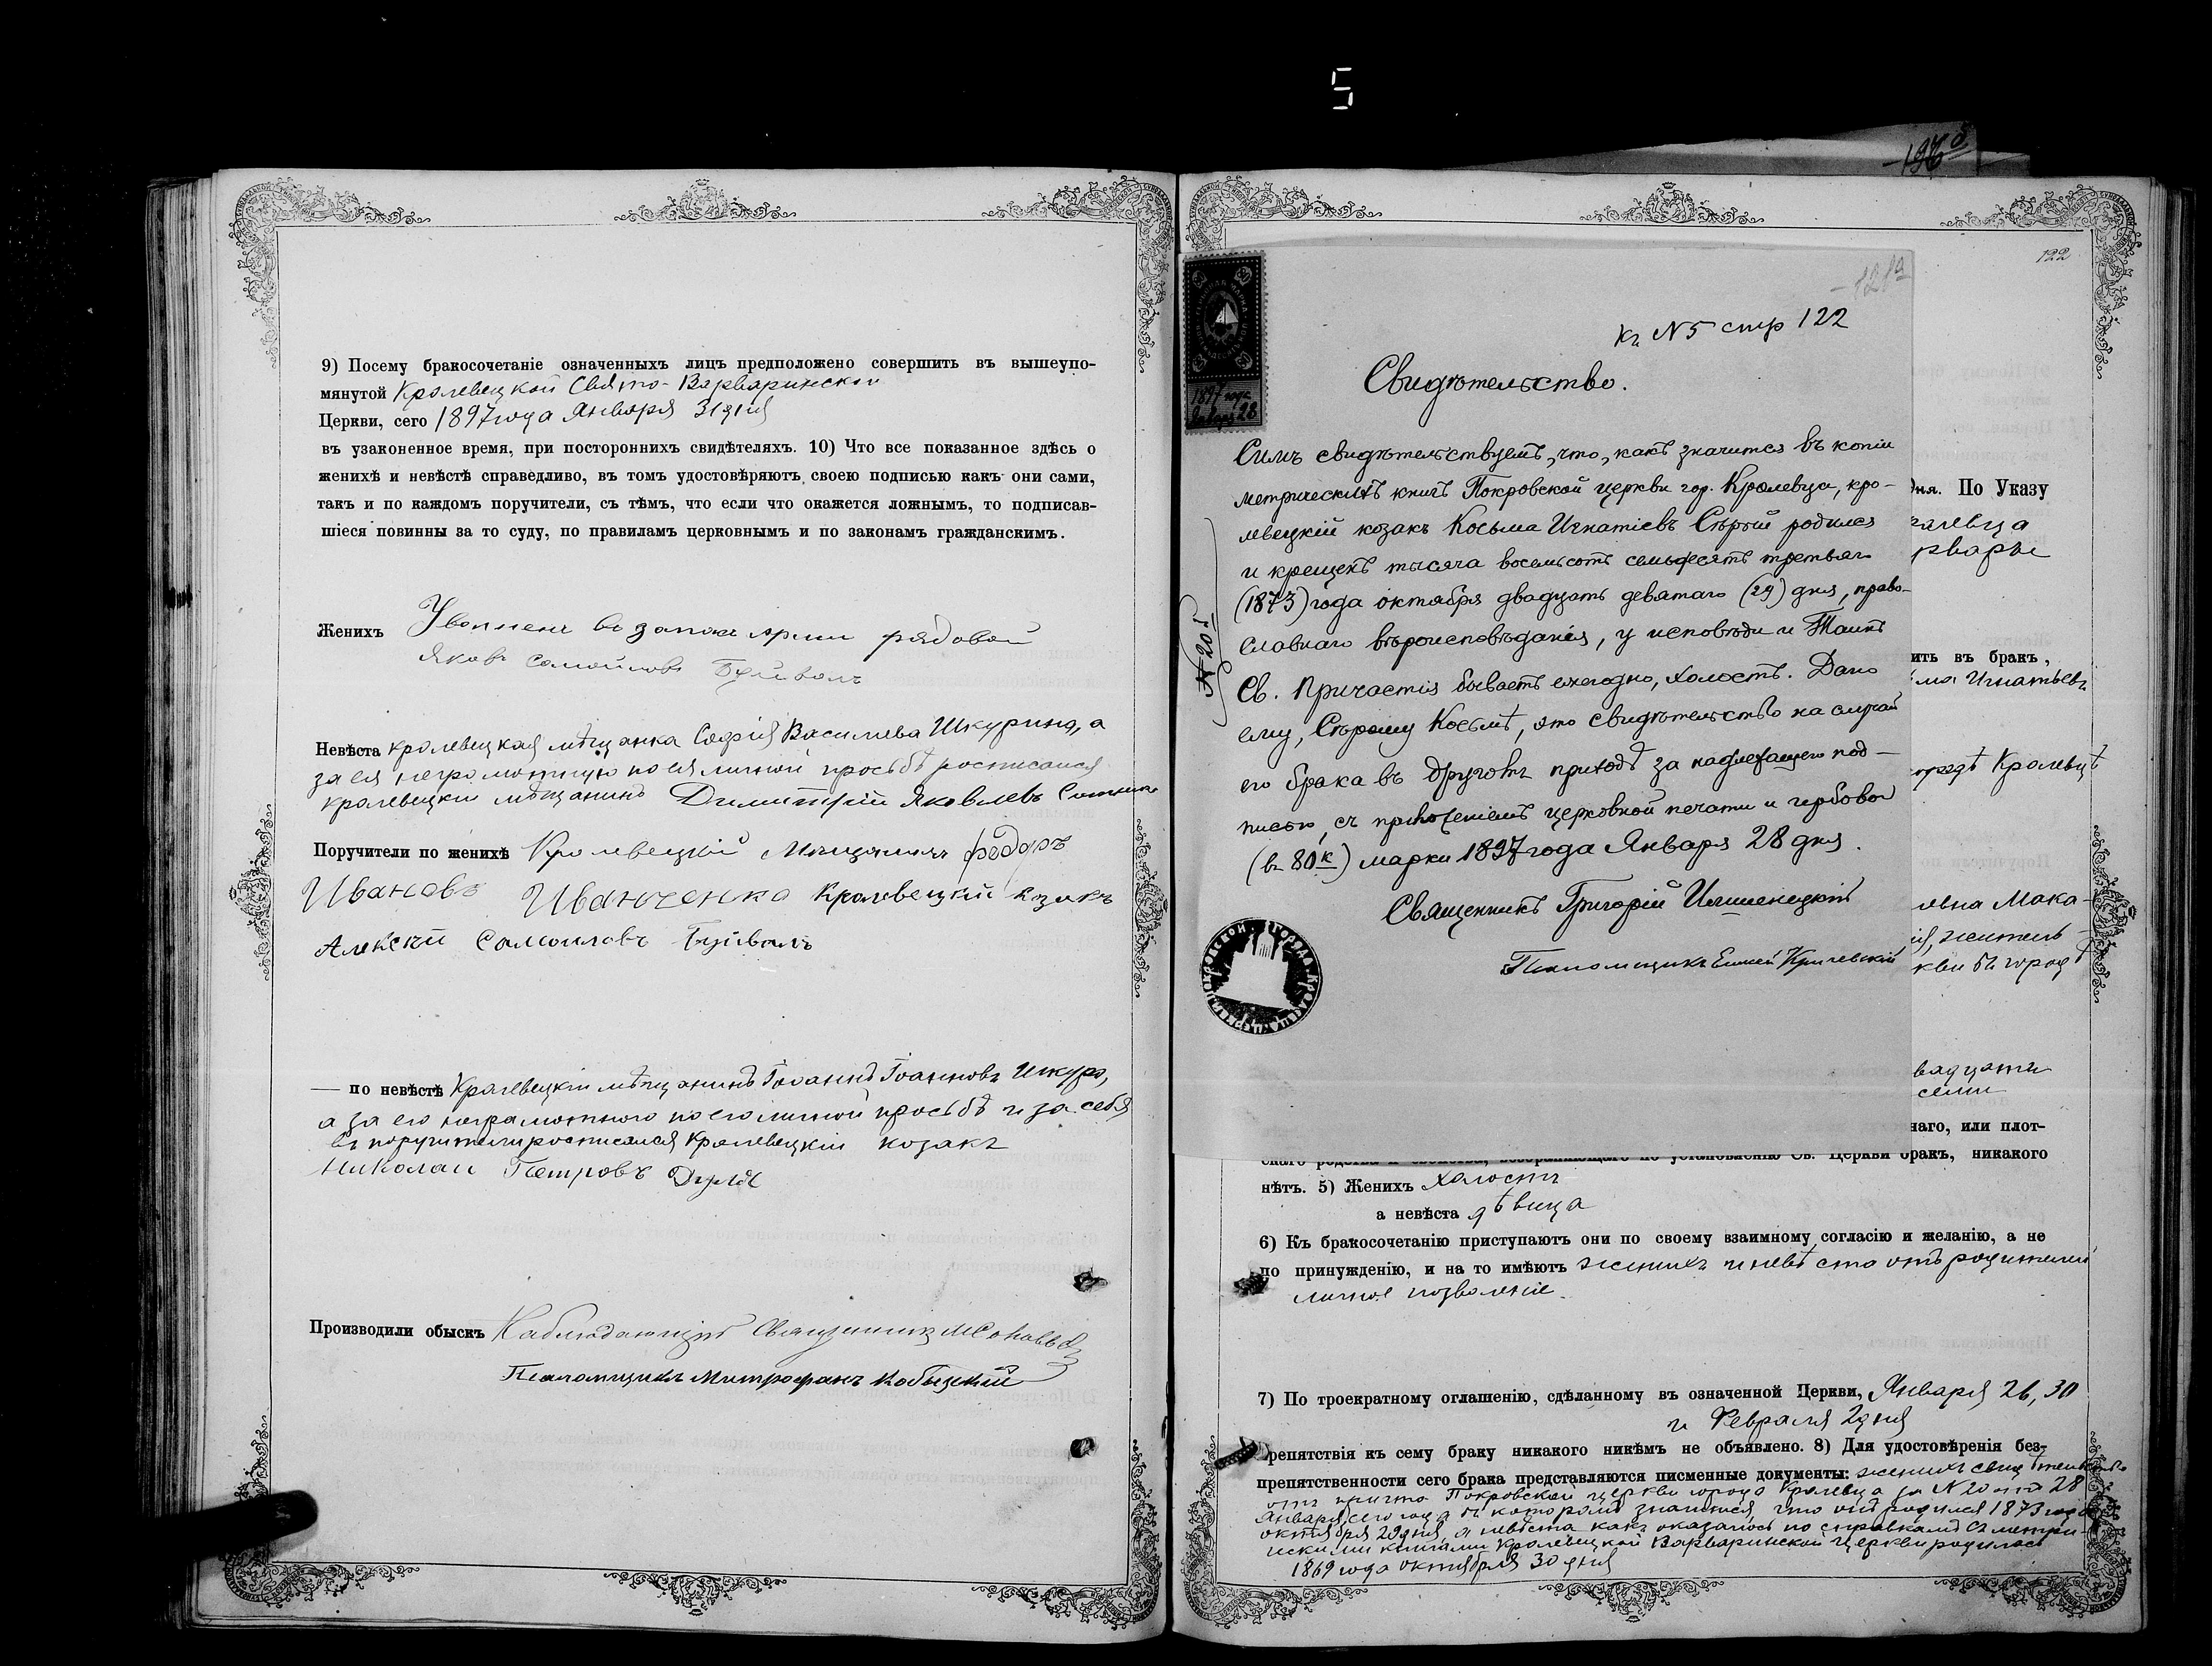 5
9) Посему бракосочетаніе означенныхъ лицъ предположено совершить въ вышеупо-
мянутой Кролевецкой Свято-Варваринской
Церкви, сего 1897 года Января 31 дня
въ узаконенное время, при постороннихъ свидѣтеляхъ. 10) Что все показанное здѣсь о
женихѣ и невѣстѣ справедливо, въ томъ удостовѣряютъ своею подписью какъ они сами,
такъ и по каждомъ поручители, съ тѣмъ, что если что окажется ложнымъ, то подписав-
шіеся повинны за то суду, по правиламъ церковнымъ и по законамъ гражданскимъ.
Женихъ Уволенъ въ запасъ арміи рядовой
Яковъ Самойловъ Буйволъ
Невѣста кролевецкая мѣщанка Софія Васильева Шкурина, а
за ея неграмотную по ея личной просьбѣ росписался
кролевецкій мѣщанинъ Димитрій Яковлевъ
Поручители по женихѣ Кролевецкій Мещанинъ Федоръ
Ивановъ Иванченко Кролевецкій козакъ
Алексѣй Самойловъ Буйволъ
— по невѣстѣ Кролевецкій мѣщанинъ Іоаннъ Іоанновъ Шкура,
а за его неграмотного по его личной просьбѣ и за себя
въ поручители росписался Кролевецкій козакъ
Николай Петровъ
Производили обыскъ Наблюдающій Священникъ
Псаломщикъ Митрофанъ
122
къ N 5 стр 122
1897 года
Января 28
Свидѣтельство.
Симъ свидѣтельствуемъ, что, какъ значится въ копіи
метрическихъ книгъ Покровской церкви гор. Кролевца, кро-
левецкій козакъ Косьма Игнатіевъ Сѣрый родился
и крещенъ тысяча восемьсотъ семьдесятъ третьяго
(1873) года октября двадцать девятаго (29) дня, право-
славнаго вѣроисповѣданія, у исповѣди и Таинъ
Св. Причастія бываетъ ежегодно, холостъ. Дано
ему, Сѣрому Косьмѣ, это свидѣтельство на случай
его брака въ другомъ приходѣ за надлежащею под-
писью, съ приложеніемъ церковной печати и гербовой
(въ 80 к) марки 1897 года Января 28 дня.
N 20
Священникъ Григорій
Псаломщикъ
дня. По Указу
ить въ бракъ,
ьма Игнатьевъ
городѣ Кролевцѣ
Мака-
жителъ
кви въ город
вадцати
семи
наго, или плот-
скаго родства и свойства, возбраняющаго по установленію Св. Церкви бракъ, никакого
нѣтъ. 5) Женихъ холостъ
а невѣста дѣвица
6) Къ бракосочетанію приступаютъ они по своему взаимному согласію и желанію, а не
по принужденію, и на то имѣютъ женихъ и невѣста отъ родителей
личное позволеніе.
7) По троекратному оглашенію, сдѣланному въ означенной Церкви, Января 26, 30
и Февраля 2 дня
препятствія къ сему браку никакого никѣмъ не объявлено. 8) Для удостовѣренія без-
препятственности сего брака представляются писменные документы: женихъ свидѣтельство
отъ причта Покровской церкви города Кролевца за N 20 отъ 28
Января сего года въ которомъ значится, что онъ родился 1873 года
октября 29 дня, а невѣста какъ оказалось по справкамъ съ метри-
ческими книгами Кролевецкой Варваринской церкви родилась
1869 года октября 30 дня